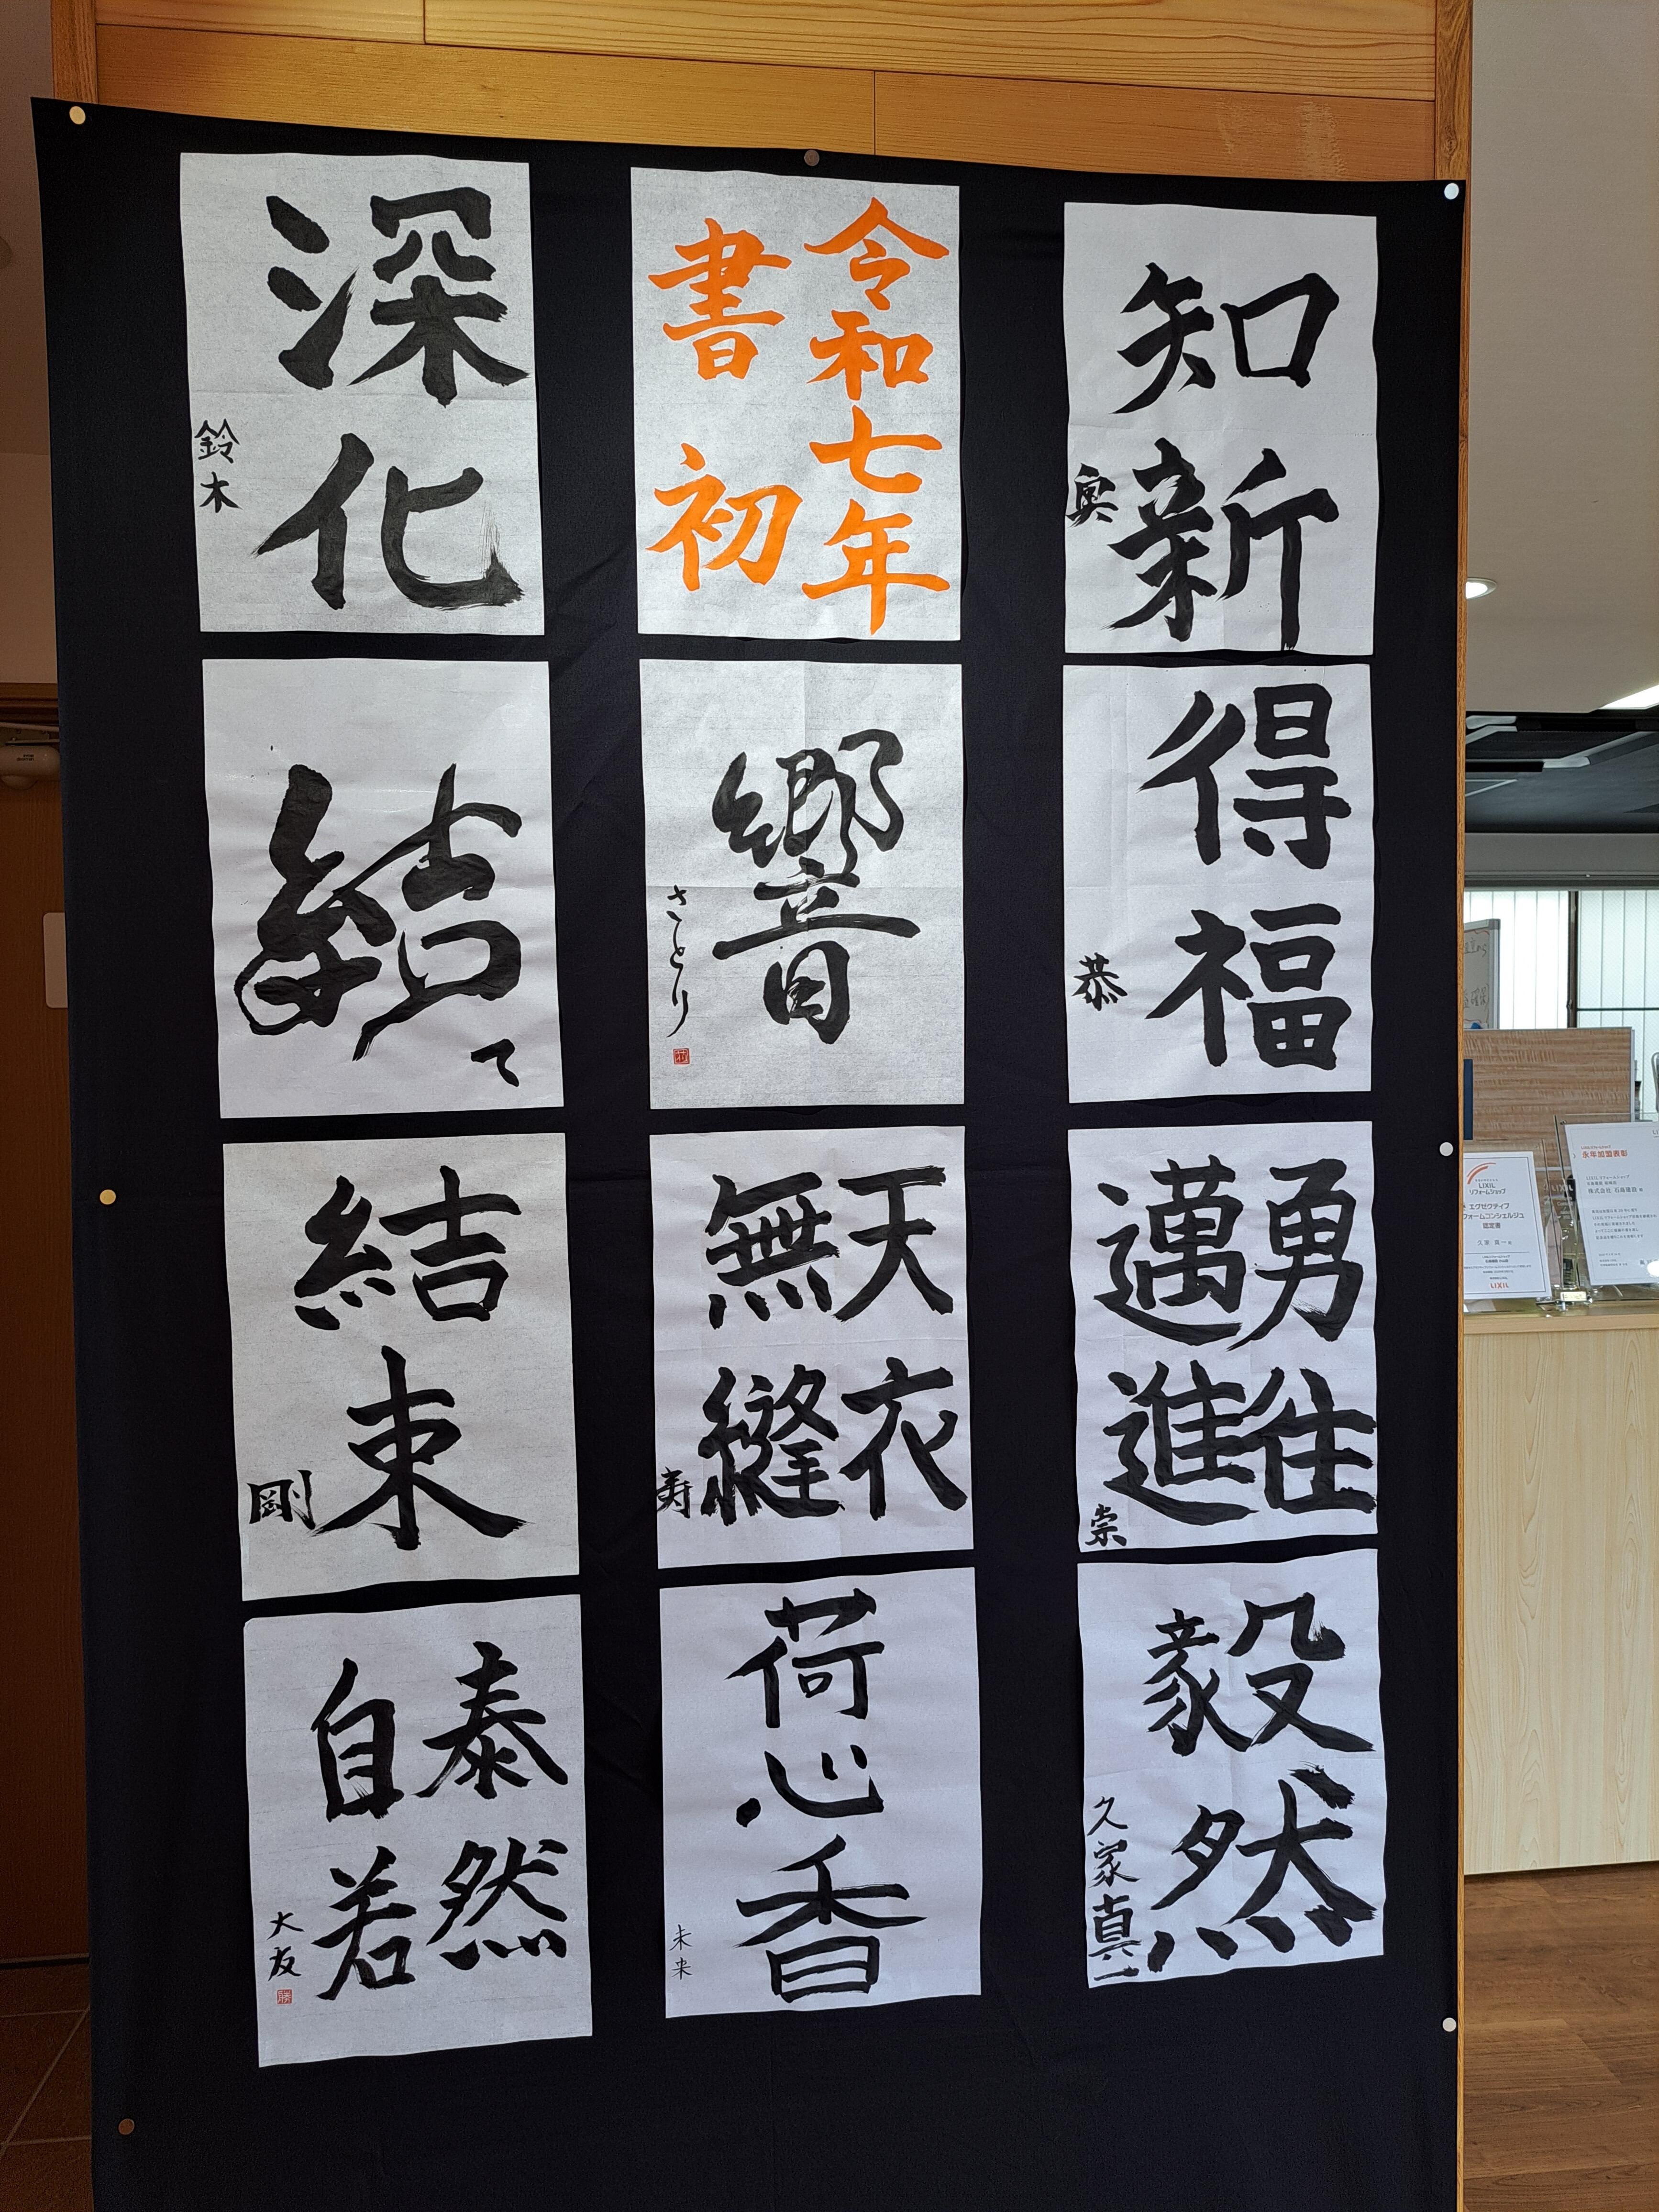 令和七年
書初
知新
奥
得福
恭
勇往
邁進
崇
毅然
久家真一
響
さとり
天衣
無縫
寿
荷心香
未来
深化
鈴木
結
て
結束
剛
泰然
自若
大友
勝
LIXIL
リフォームショップ
エグゼクティブ
リフォームコンシェルジュ
認定書
LIXIL
永年加盟表彰
LIXIL リフォームショップ